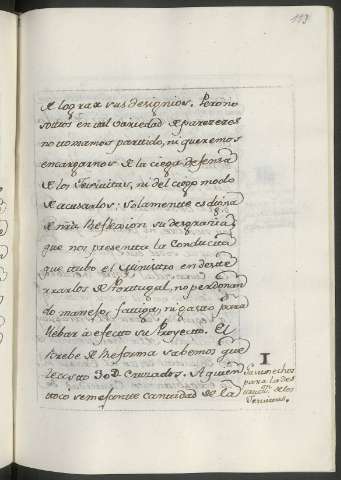 113
de lograr sus designios. Pero no
sotros en tal variedad de pareceres
no tomamos partido, ni queremos
encargarnos de la ciega defensa
de los Jesuitas, ni del ciego modo
de acusarlos: solamente es digna
de nra Reflexion su desgracia,
que nos presenta la Conducta
que tubo el Ministro en deste
rrarlos de Portugal, no perdonan
do manejo, fatiga, ni gasto para
llebar à efecto su Proyecto. El
Brebe de Reforma sabemos que
le costo 30D. Cruzados. A quien
toco semejante cantidad de la
I
Gastos echos
para la des
de los
Jesuitas.